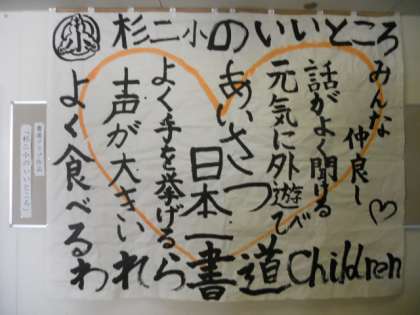 杉二小のいいところ
みんな仲良し♡
話がよく聞ける
元気に外遊び
あいさつ日本一
よく手を挙げる
声が大きい
よく食べる
われら書道Children
「杉二小のいいところ」